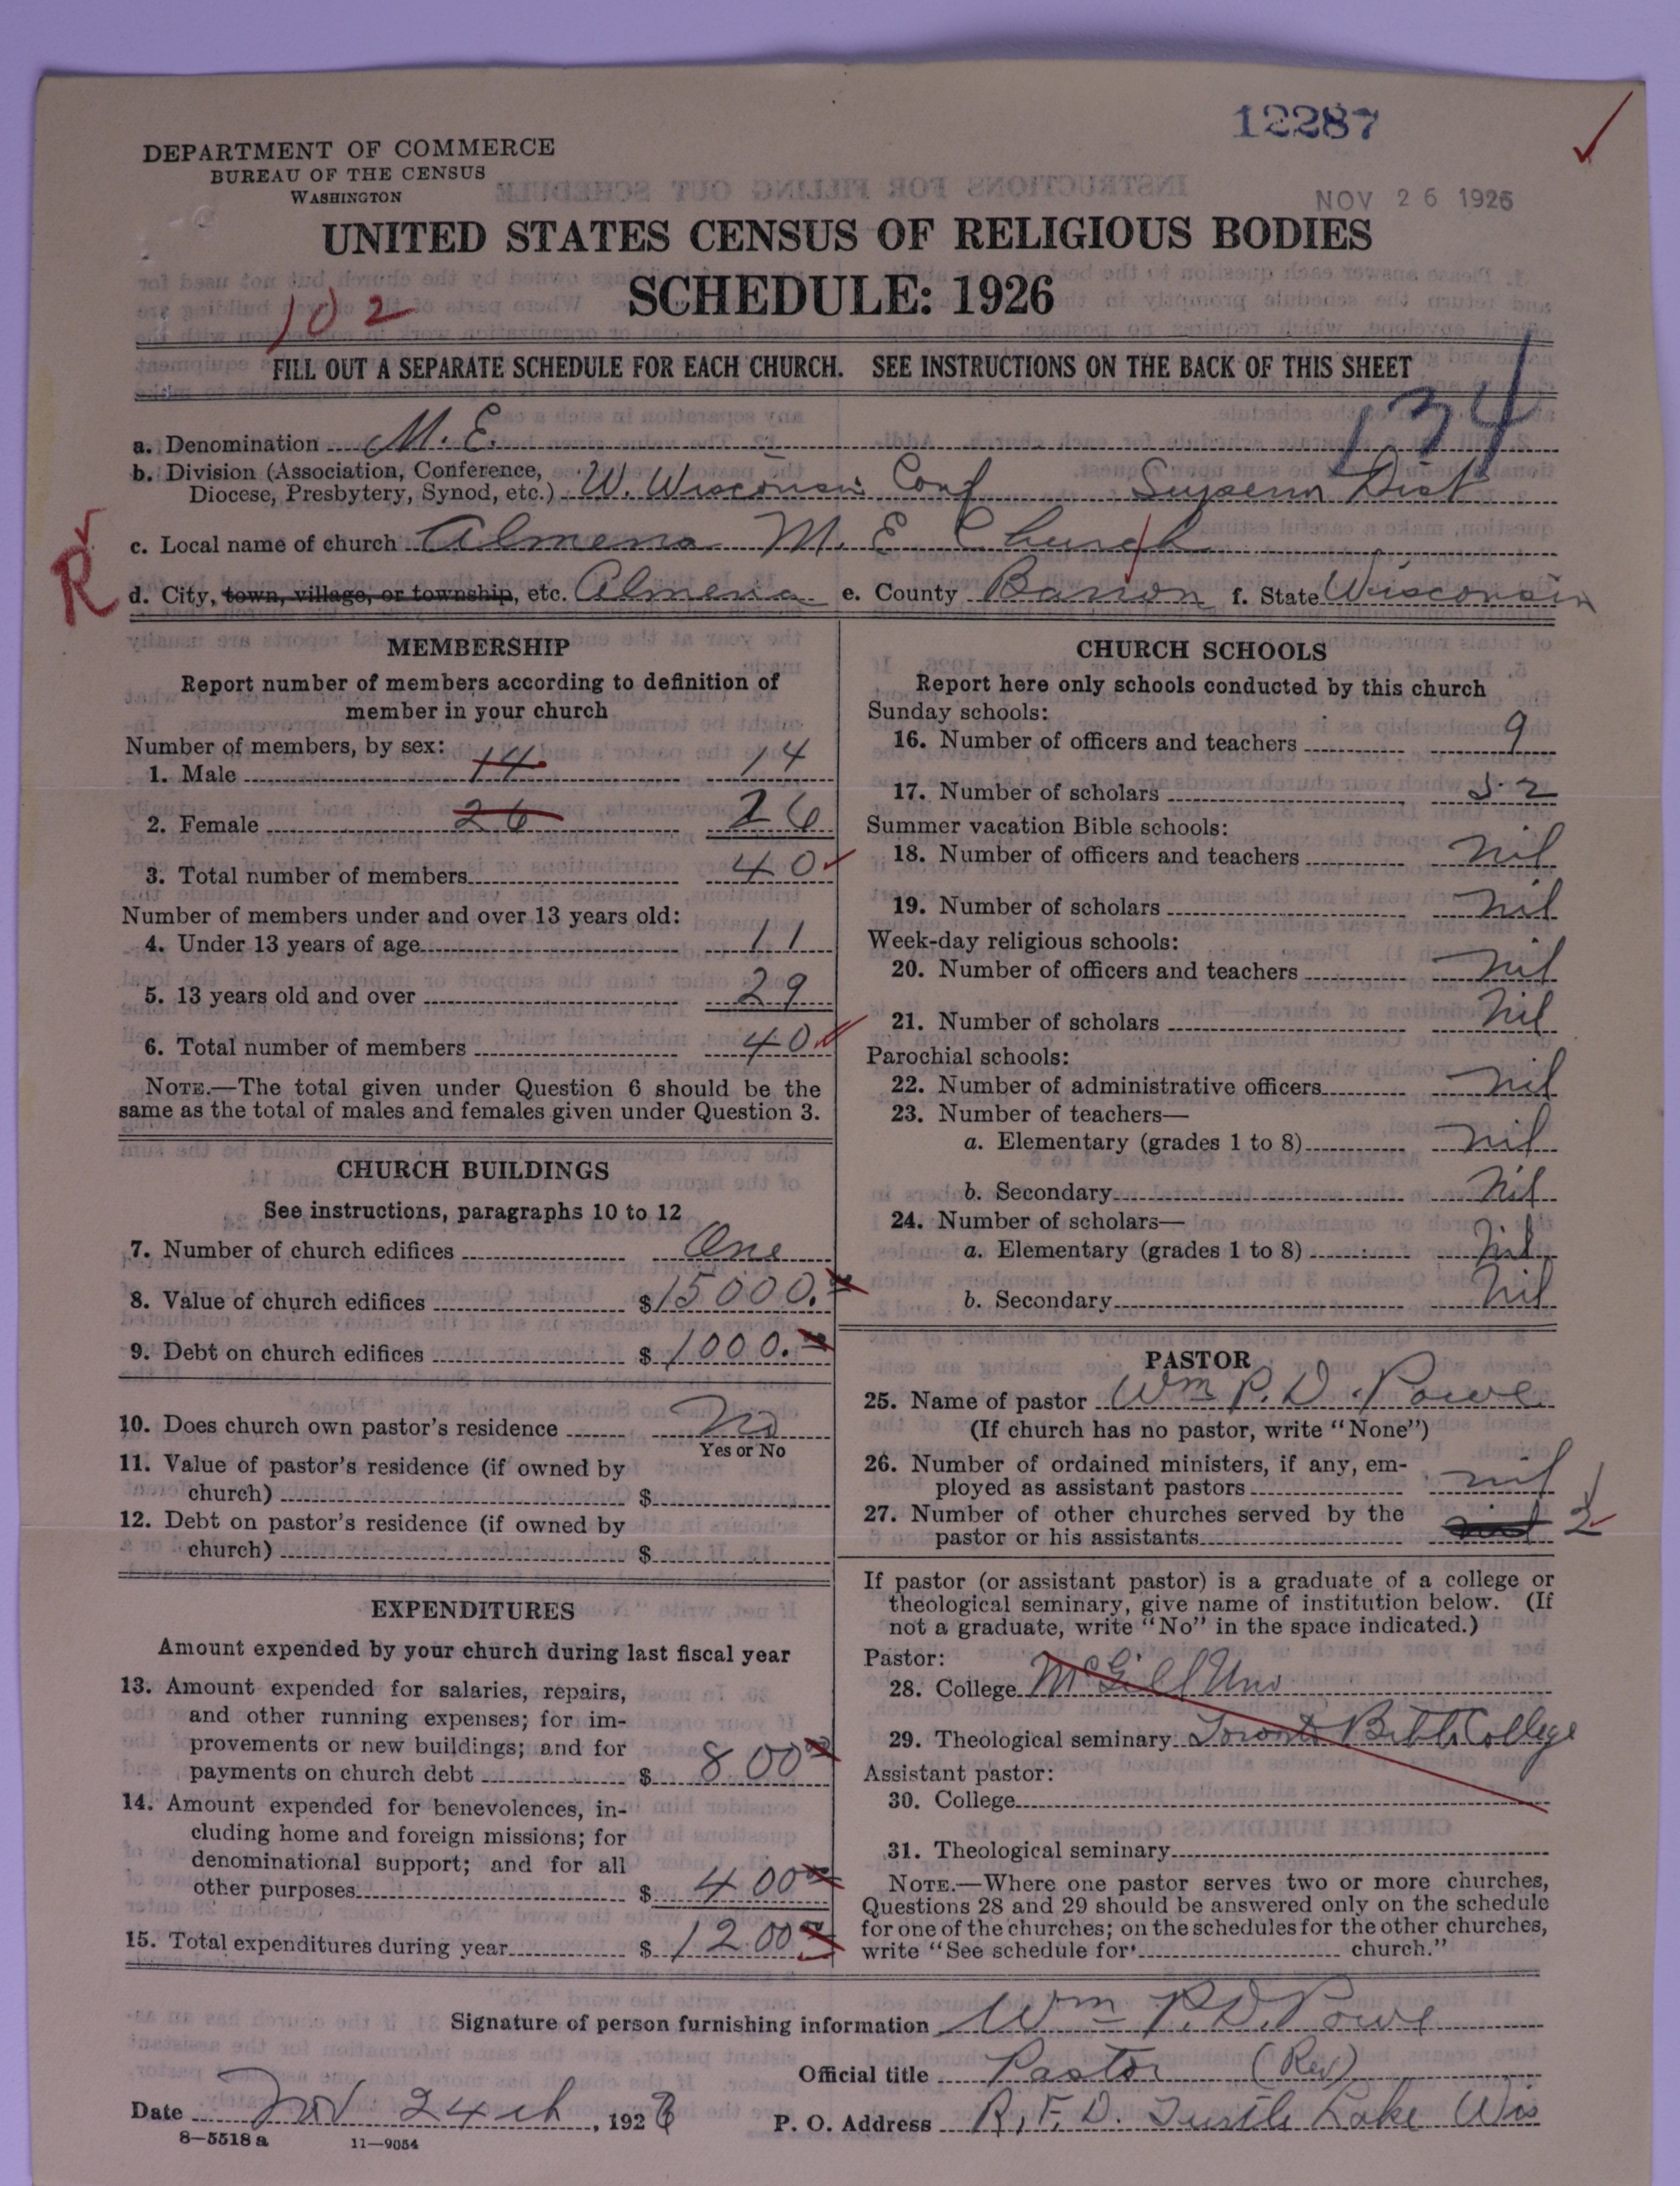 12287
DEPARTMENT OF COMMERCE
BUREAU OF THE CENSUS
WASHINGTON
NOV 26 1926
UNITED STATES CENSUS OF RELIGIOUS BODIES
SCHEDULE: 1926
102
FILL OUT A SEPARATE SCHEDULE FOR EACH CHURCH. SEE INSTRUCTIONS ON THE BACK OF THIS SHEET
134
a. Denomination M. E.
b. Division (Association, Conference,
Diocese, Presbytery, Synod, etc.) W. Wisconsin Conf Superior Dist
c. Local name of church Almena M. E Church
R
d. City, town, village, or township, etc. Almena e. County Barron f. State Wisconsin
MEMBERSHIP
Report number of members according to definition of
member in your church
Number of members, by sex:
1. Male 14 14
2. Female 26 26
3. Total number of members 40
Number of members under and over 13 years old:
4. Under 13 years of age 11
5. 13 years old and over 29
6. Total number of members 40
NOTE.—The total given under Question 6 should be the
same as the total of males and females given under Question 3.
CHURCH BUILDINGS
See instructions, paragraphs 10 to 12
7. Number of church edifices One
8. Value of church edifices $15000.
9. Debt on church edifices $1000.
10. Does church own pastor's residence No
Yes or No
11. Value of pastor's residence (if owned by
church) $
12. Debt on pastor's residence (if owned by
church) $
EXPENDITURES
Amount expended by your church during last fiscal year
13. Amount expended for salaries, repairs,
and other running expenses; for im-
provements or new buildings; and for
payments on church debt $ 800
14. Amount expended for benevolences, in-
cluding home and foreign missions; for
denominational support; and for all
other purposes $ 400
15. Total expenditures during year $ 1200
CHURCH SCHOOLS
Report here only schools conducted by this church
Sunday schools:
16. Number of officers and teachers 9
17. Number of scholars 52
Summer vacation Bible schools:
18. Number of officers and teachers nil
19. Number of scholars nil
Week-day religious schools:
20. Number of officers and teachers nil
21. Number of scholars nil
Parochial schools:
22. Number of administrative officers nil
23. Number of teachers—
a. Elementary (grades 1 to 8) nil
b. Secondary nil
24. Number of scholars—
a. Elementary (grades 1 to 8) nil
b. Secondary nil
PASTOR
25. Name of pastor Wm P. D. Powe
(If church has no pastor, write "None")
26. Number of ordained ministers, if any, em-
ployed as assistant pastors nil
27. Number of other churches served by the
pastor or his assistants nil 2
If pastor (or assistant pastor) is a graduate of a college or
theological seminary, give name of institution below. (If
not a graduate, write "No" in the space indicated.)
Pastor:
28. College McGill Uni
29. Theological seminary Toronto Bible College
Assistant pastor:
30. College
31. Theological seminary
NOTE.—Where one pastor serves two or more churches,
Questions 28 and 29 should be answered only on the schedule
for one of the churches; on the schedules for the other churches,
write "See schedule for church."
Signature of person furnishing information Wm P. D. Powe
Official title Pastor (Rev)
Date Nov 24th, 1926 P. O. Address R. F. D. Turtle Lake Wis
8—5518 a 11—9054